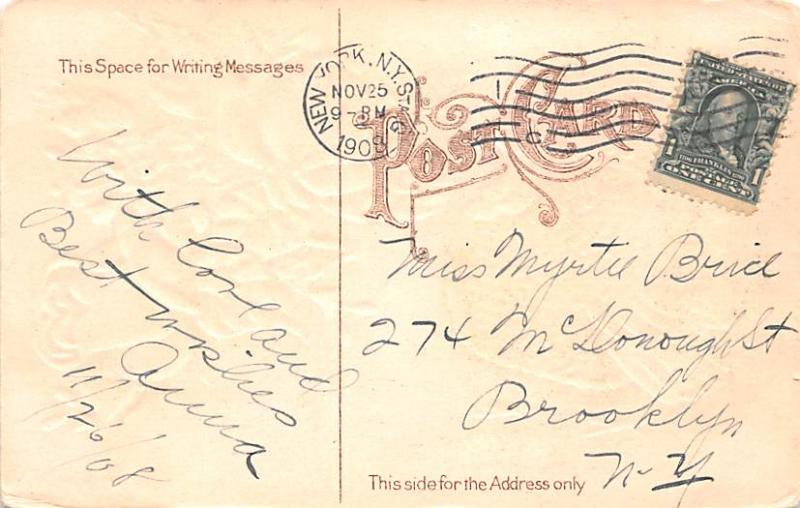 This Space for Writing Messages
NEW YORK, N.Y. STA. G
NOV 25
9-PM
1908
POST CARD
1706 FRANKLIN 1790
POSTAGE
ONE CENT
1
1
With love and
Best wishes
Anna
11/26/08
Miss Myrtle Brice
274 McDonough St
Brooklyn
N-Y
This side for the Address only